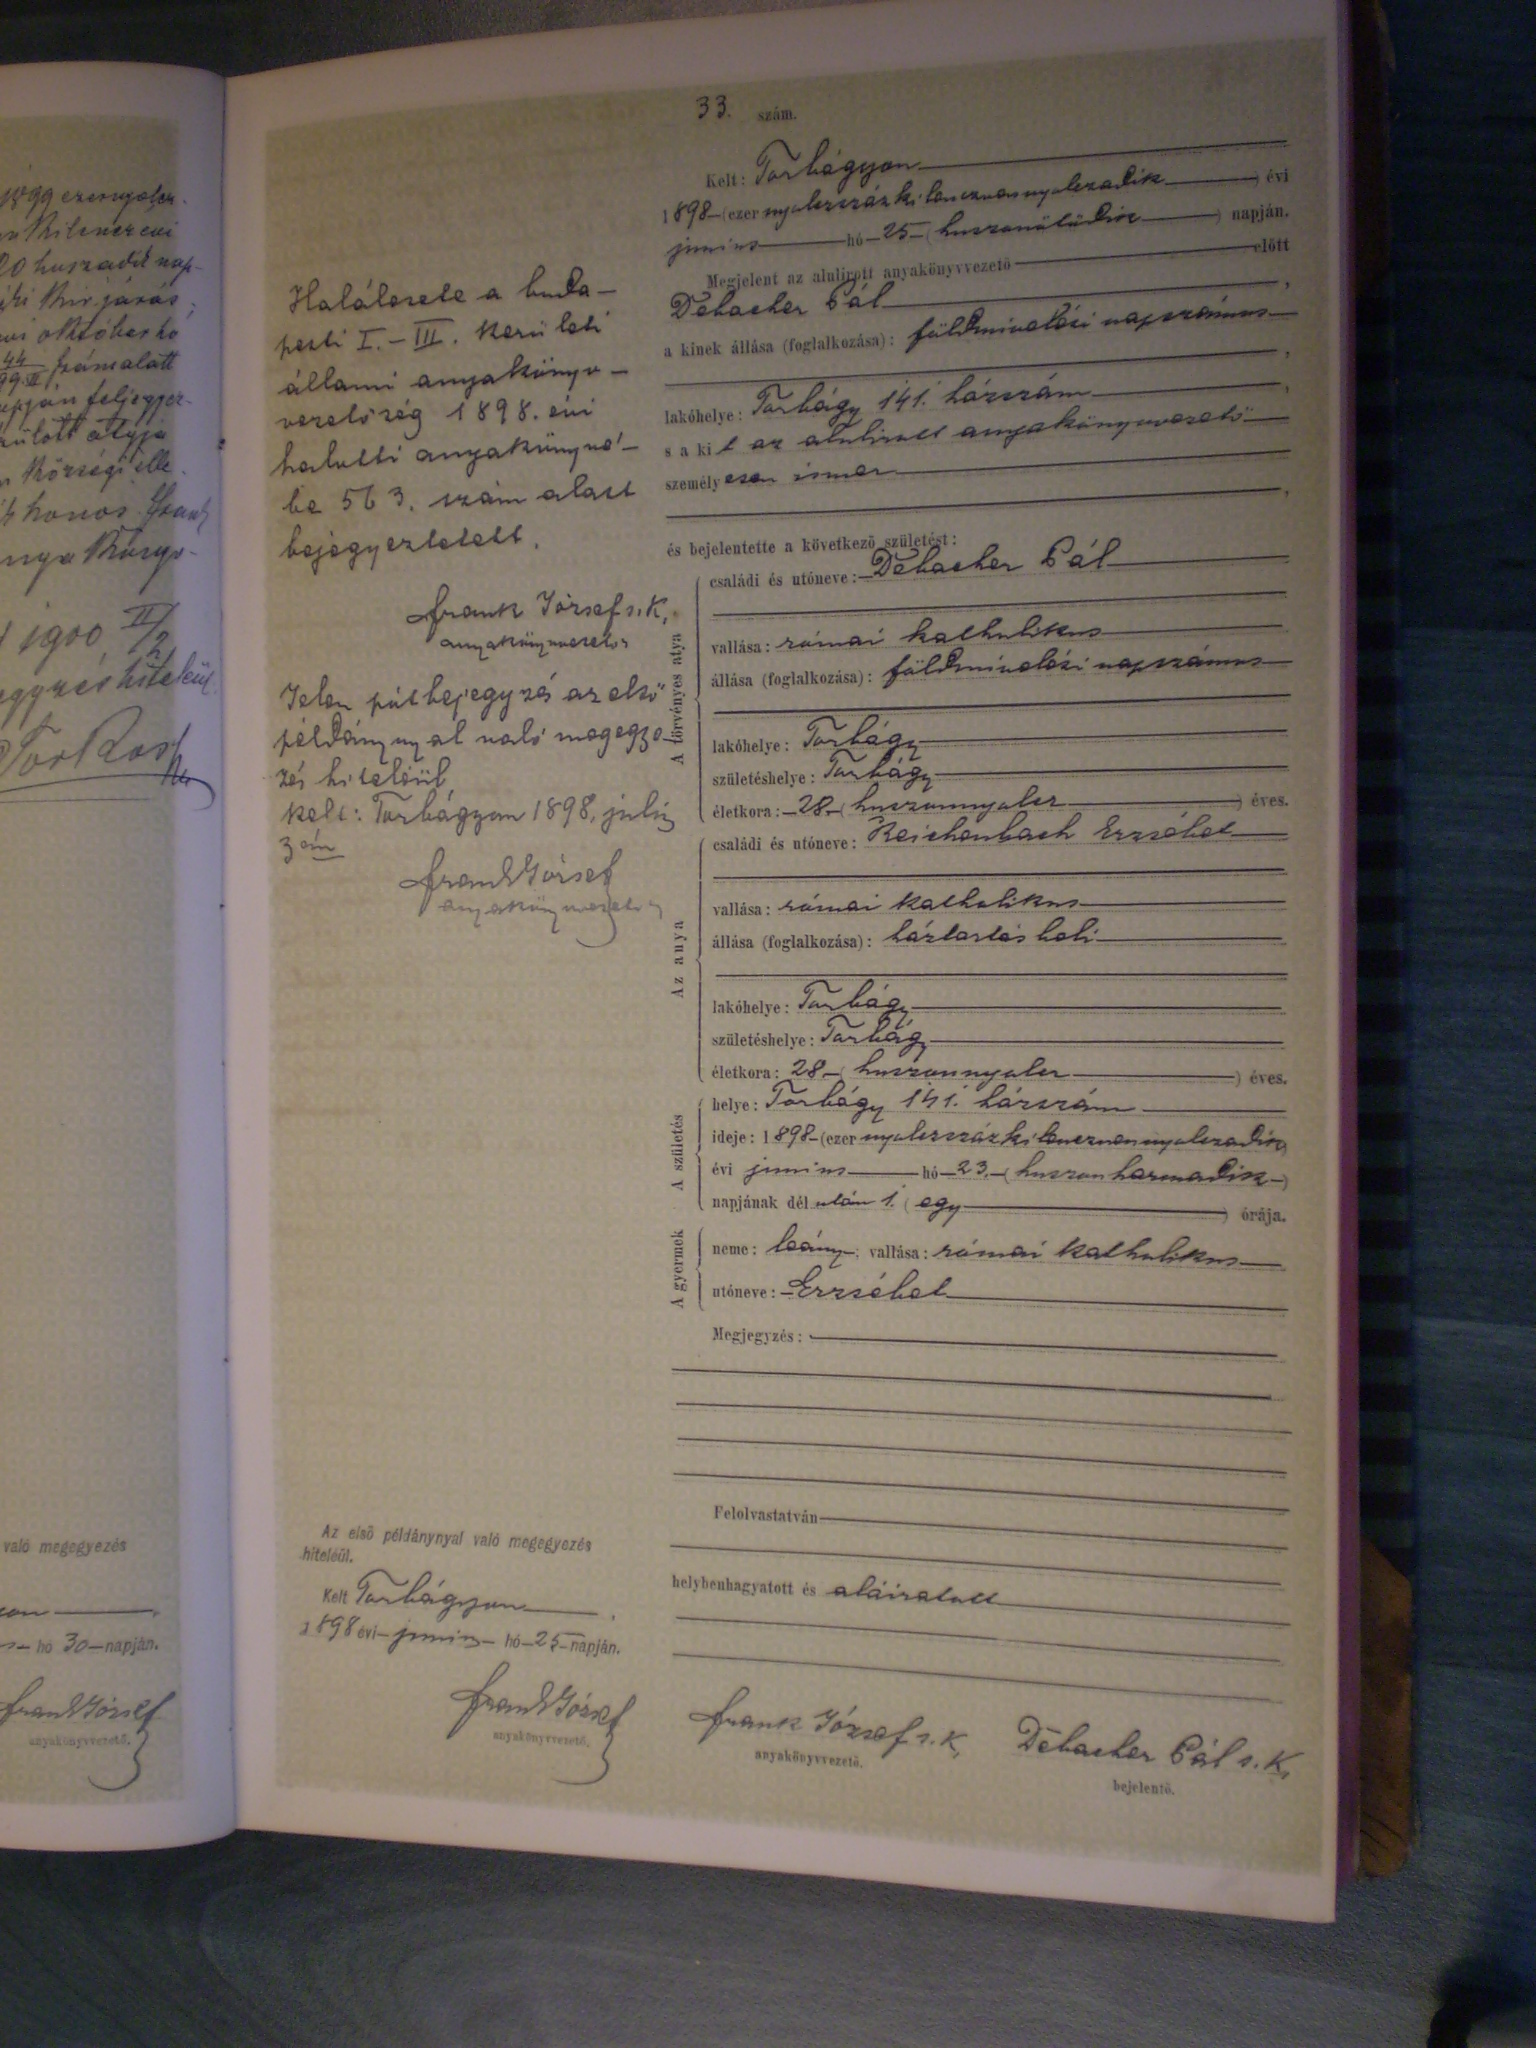 1899 ezernyolcz-
20 huszadik nap-
októberhó
44
99.II számalatt
apján feljegyez-
atyja
községi ille-
honos
1900 II/2
hiteléül
való megegyezés
hó 30 napján.
Frank József
anyakönyvvezető.
Halálesete a buda-
pesti I.-III. kerületi
állami anyakönyv-
vezetőség 1898. évi
halotti anyakönyvé-
be 563. szám alatt
bejegyeztetett.
Frank József s.k.
anyakönyvvezető
Jelen pótbejegyzés az első
példánynyal való megegye-
zés hiteléül
kelt: Torbágyon 1898. julius
3án
Frank József
anyakönyvvezető
Az első példánynyal való megegyezés
hiteléül.
Kelt Torbágyon
1898 évi junius hó 25 napján.
Frank József
anyakönyvvezető.
33. szám.
Kelt: Torbágyon
1898 (ezer nyolczszázkilenczvennyolczadik) évi
junius hó 25 (huszonötödik) napján.
Megjelent az alulirott anyakönyvvezető előtt
Debacher Pál,
a kinek állása (foglalkozása): földmivelési napszámos
,
lakóhelye: Torbágy 141. házszám,
s a kit az alulirott anyakönyvvezető
személyesen ismer
,
és bejelentette a következő születést:
A törvényes atya
családi és utóneve: Debacher Pál
vallása: római katholikus
állása (foglalkozása): földmivelési napszámos
lakóhelye: Torbágy
születéshelye: Torbágy
életkora: 28 (huszonnyolcz) éves.
Az anya
családi és utóneve: Reichenbach Erzsébet
vallása: római katholikus
állása (foglalkozása): háztartásbeli
lakóhelye: Torbágy
születéshelye: Torbágy
életkora: 28 (huszonnyolcz) éves.
A születés
helye: Torbágy 141. házszám
ideje: 1898 (ezer nyolczszázkilenczvennyolczadik)
évi junius hó 23. (huszonharmadik)
napjának dél után 1. (egy) órája.
A gyermek
neme: leány; vallása: római katholikus
utóneve: Erzsébet
Megjegyzés:
Felolvastatván
helybenhagyatott és aláiratott
Frank József s.k.
anyakönyvvezető.
Debacher Pál s.k.
bejelentő.